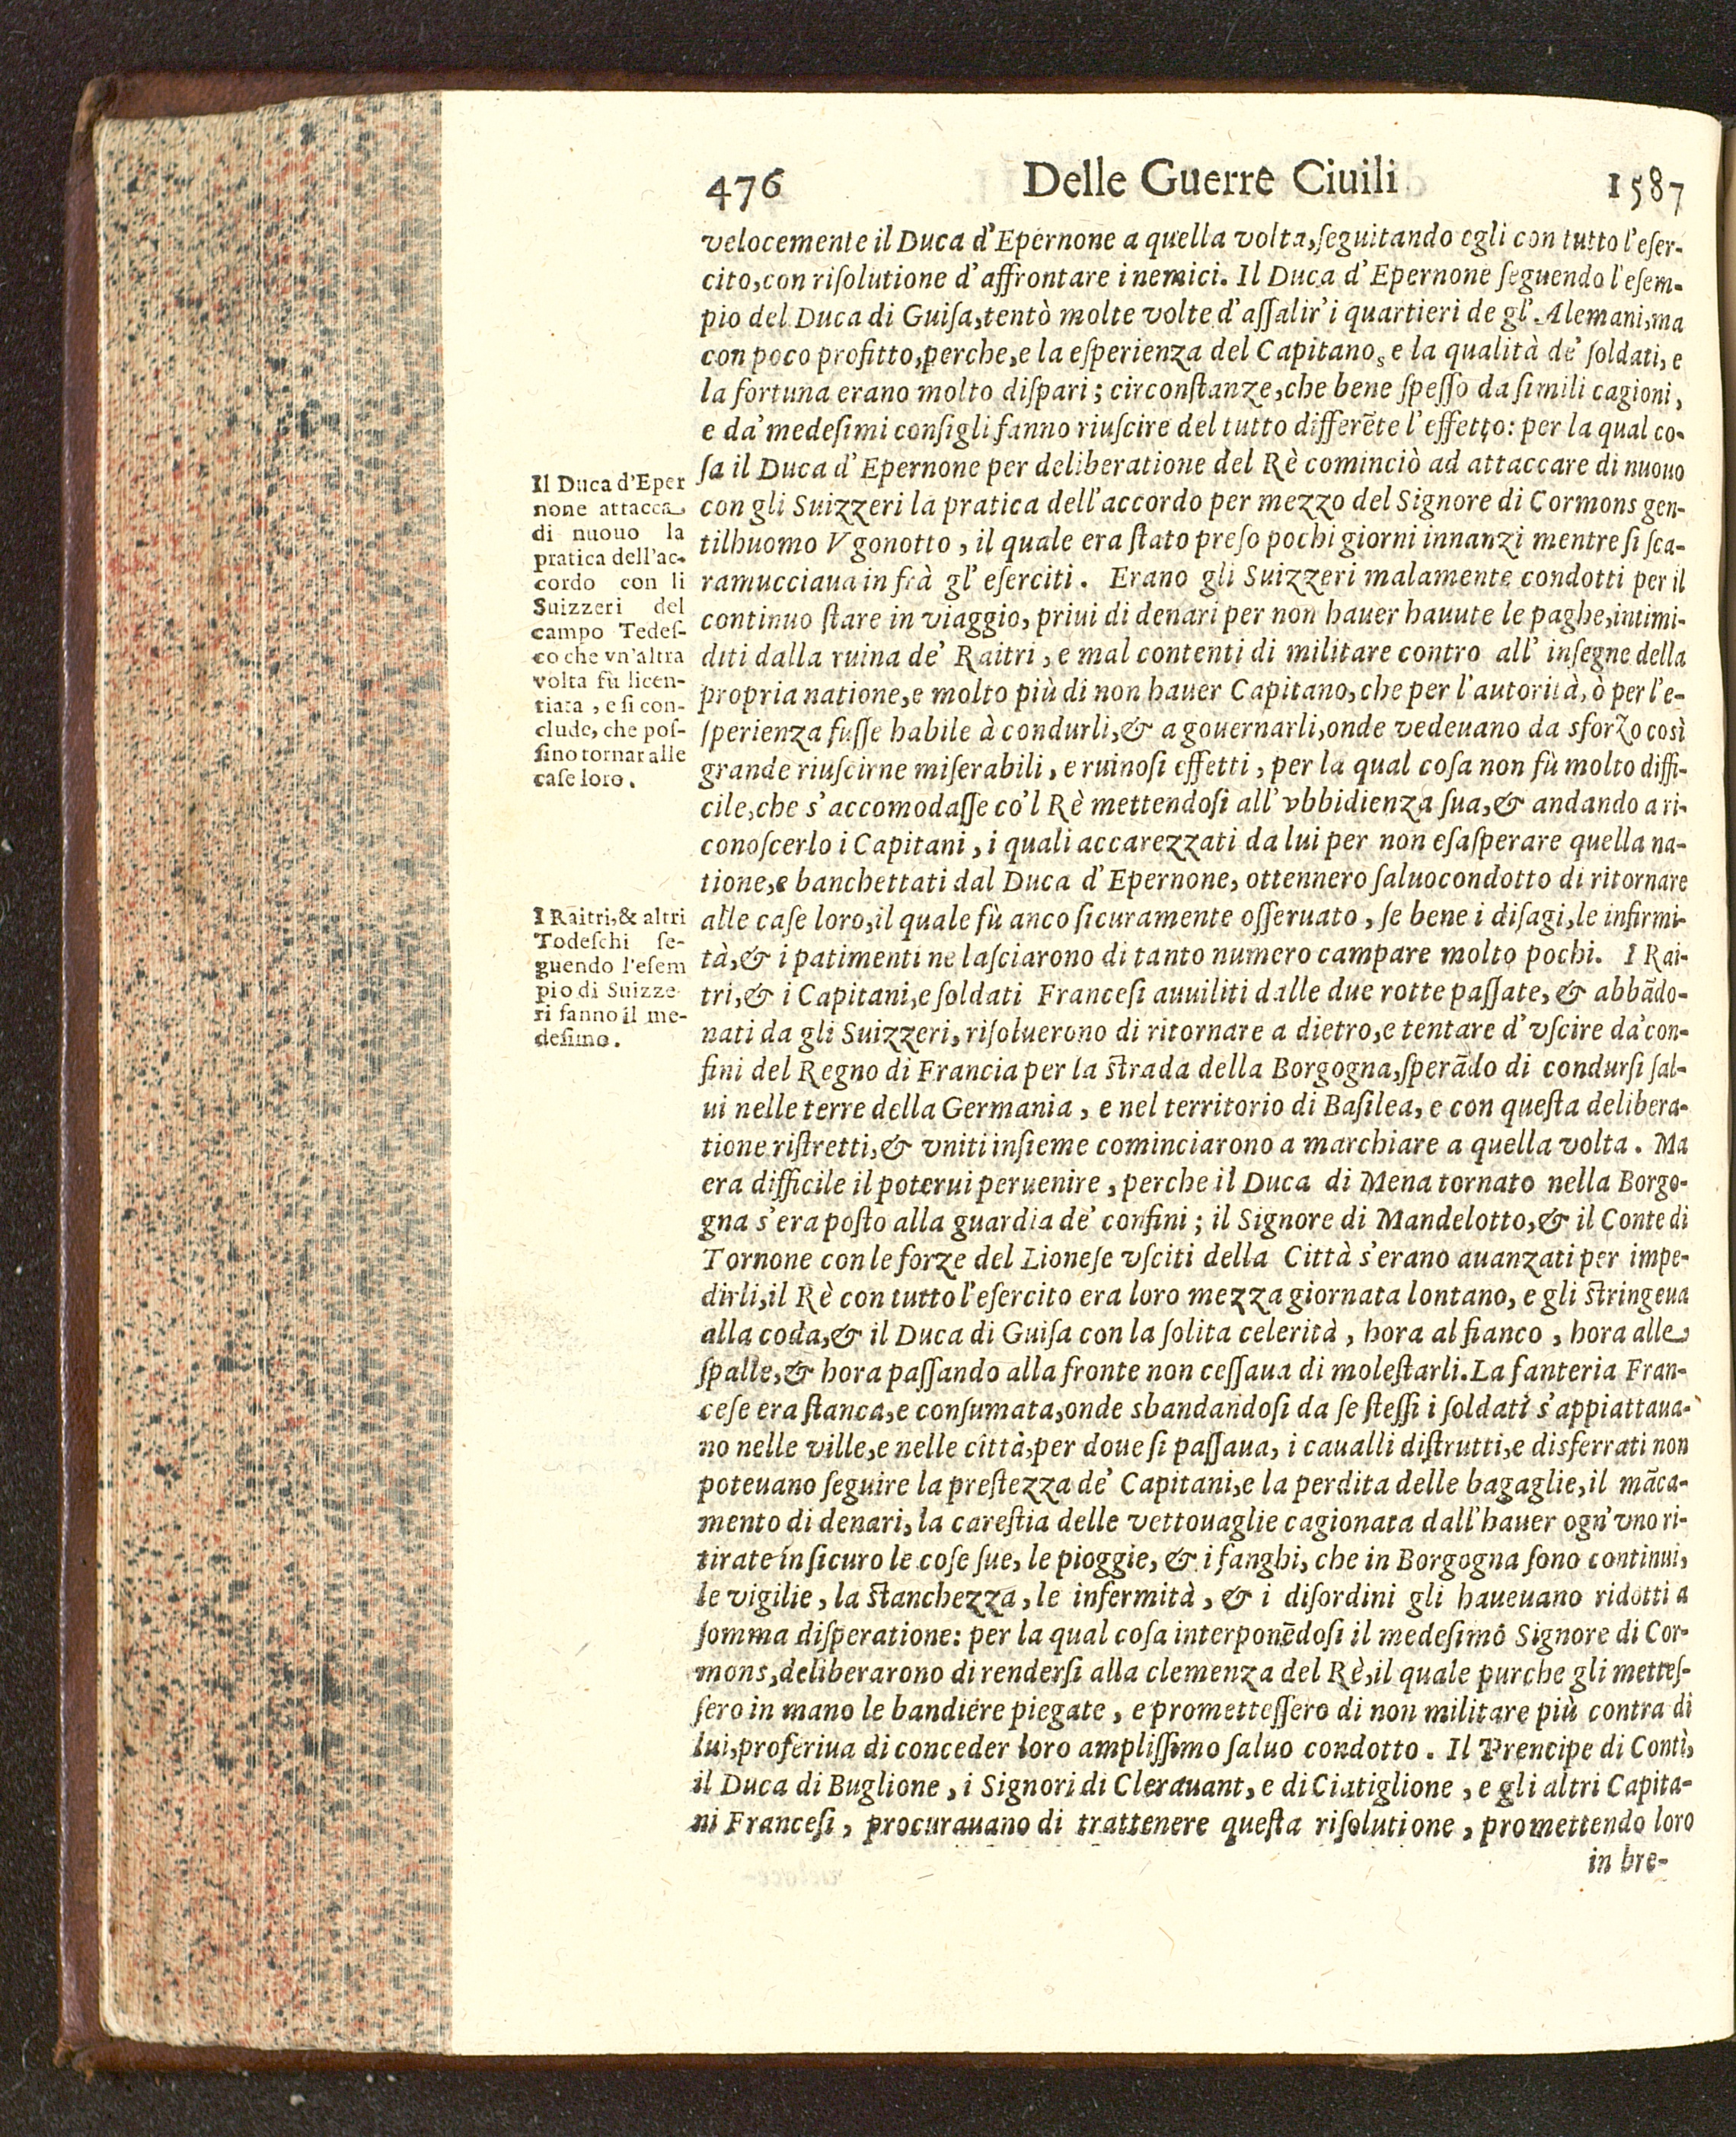 476 Delle Guerre Ciuili 1587
velocemente il Duca d'Epernone a quella volta, ſeguitando egli con tutto l'eſer-
cito, con riſolutione d'affrontare i nemici. Il Duca d'Epernone ſeguendo l'eſem-
pio del Duca di Guiſa, tentò molte volte d'aſſalir' i quartieri de gl'Alemani, ma
con poco profitto, perche, e la eſperienza del Capitano, e la qualità de' ſoldati, e
la fortuna erano molto diſpari; circonſtanze, che bene ſpeſſo da ſimili cagioni,
e da' medeſimi conſigli fanno riuſcire del tutto differẽte l'effetto: per la qual co-
ſa il Duca d'Epernone per deliberatione del Rè cominciò ad attaccare di nuouo
con gli Suizzeri la pratica dell'accordo per mezzo del Signore di Cormons gen-
tilhuomo Vgonotto, il quale era ſtato preſo pochi giorni innanzi mentre ſi ſca-
ramucciaua in frà gl'eſerciti. Erano gli Suizzeri malamente condotti per il
continuo ſtare in viaggio, priui di denari per non hauer hauute le paghe, intimi-
diti dalla ruina de' Raitri, e mal contenti di militare contro all'inſegne della
propria natione, e molto più di non hauer Capitano, che per l'autorità, ò per l'e-
ſperienza fuſſe habile à condurli, & a gouernarli, onde vedeuano da sforzo così
grande riuſcirne miſerabili, e ruinoſi effetti, per la qual coſa non fù molto diffi-
cile, che s'accomodaſſe co'l Rè mettendoſi all'vbbidienza ſua, & andando a ri-
conoſcerlo i Capitani, i quali accarezzati da lui per non eſaſperare quella na-
tione, e banchettati dal Duca d'Epernone, ottennero ſaluocondotto di ritornare
alle caſe loro, il quale fù anco ſicuramente oſſeruato, ſe bene i diſagi, le infirmi-
tà, & i patimenti ne laſciarono di tanto numero campare molto pochi. I Rai-
tri, & i Capitani, e ſoldati Franceſi auuiliti dalle due rotte paſſate, & abbãdo-
nati da gli Suizzeri, riſoluerono di ritornare a dietro, e tentare d'vſcire da' con-
fini del Regno di Francia per la ſtrada della Borgogna, ſperãdo di condurſi ſal-
ui nelle terre della Germania, e nel territorio di Baſilea, e con queſta delibera-
tione riſtretti, & vniti inſieme cominciarono a marchiare a quella volta. Ma
era difficile il poterui peruenire, perche il Duca di Mena tornato nella Borgo-
gna s'era poſto alla guardia de' confini; il Signore di Mandelotto, & il Conte di
Tornone con le forze del Lioneſe vſciti della Città s'erano auanzati per impe-
dirli, il Rè con tutto l'eſercito era loro mezza giornata lontano, e gli ſtringeua
alla coda, & il Duca di Guiſa con la ſolita celerità, hora al fianco, hora alle
ſpalle, & hora paſſando alla fronte non ceſſaua di moleſtarli. La fanteria Fran-
ceſe era ſtanca, e conſumata, onde sbandandoſi da ſe ſteſſi i ſoldati s'appiattaua-
no nelle ville, e nelle città, per doue ſi paſſaua, i caualli diſtrutti, e disferrati non
poteuano ſeguire la preſtezza de' Capitani, e la perdita delle bagaglie, il mãca-
mento di denari, la careſtia delle vettouaglie cagionata dall'hauer ogn'vno ri-
tirate in ſicuro le coſe ſue, le pioggie, & i fanghi, che in Borgogna ſono continui,
le vigilie, la ſtanchezza, le infermità, & i diſordini gli haueuano ridotti a
ſomma diſperatione: per la qual coſa interponẽdoſi il medeſimo Signore di Cor-
mons, deliberarono di renderſi alla clemenza del Rè, il quale purche gli metteſ-
ſero in mano le bandiere piegate, e prometteſſero di non militare più contra di
lui, proferiua di conceder loro ampliſſimo ſaluo condotto. Il Prencipe di Contì,
il Duca di Buglione, i Signori di Clerauant, e di Ciatiglione, e gli altri Capita-
ni Franceſi, procurauano di trattenere queſta riſolutione, promettendo loro
in bre-
Il Duca d'Eper
none attacca
di nuouo la
pratica dell'ac-
cordo con li
Suizzeri del
campo Tedeſ-
co che vn'altra
volta fù licen-
tiata, e ſi con-
clude, che poſ-
ſino tornar alle
caſe loro.
I Raitri, & altri
Todeſchi ſe-
guendo l'eſem
pio di Suizze
ri fanno il me-
deſimo.